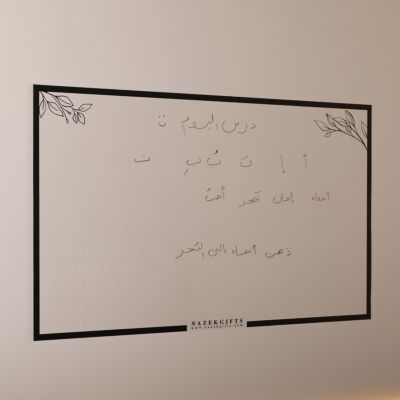 درس اليوم :
أ إ بَ بُ بِ ت
أسماء إيمان تحب أختُ
ذهبت أسماء إلى البحر
NAZEKGIFTS
www.nazekgifts.com